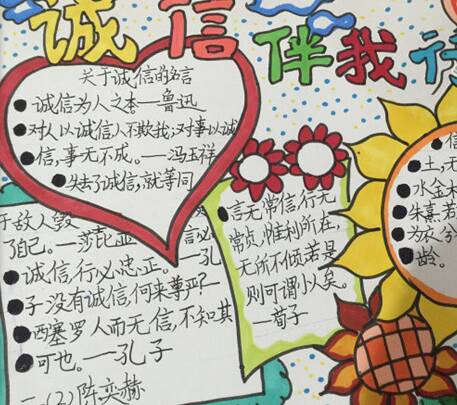 诚信伴我行
关于诚信的名言
诚信为人之本—鲁迅
对人以诚信人不欺我;对事以诚
信,事无不成。—冯玉祥
失去了诚信,就等同
于敌人毁
了自己。—莎士比亚
言必
诚信,行必忠正。—孔
子 没有诚信,何来尊严?—
西塞罗 人而无信,不知其
可也。—孔子
二、(2)陈奕赫
言无常信,行无
常贞,惟利所在,
无所不倾,若是
则可谓小人矣。
—荀子
信
土,无
水金木
朱熹 若
为交 分
龄。